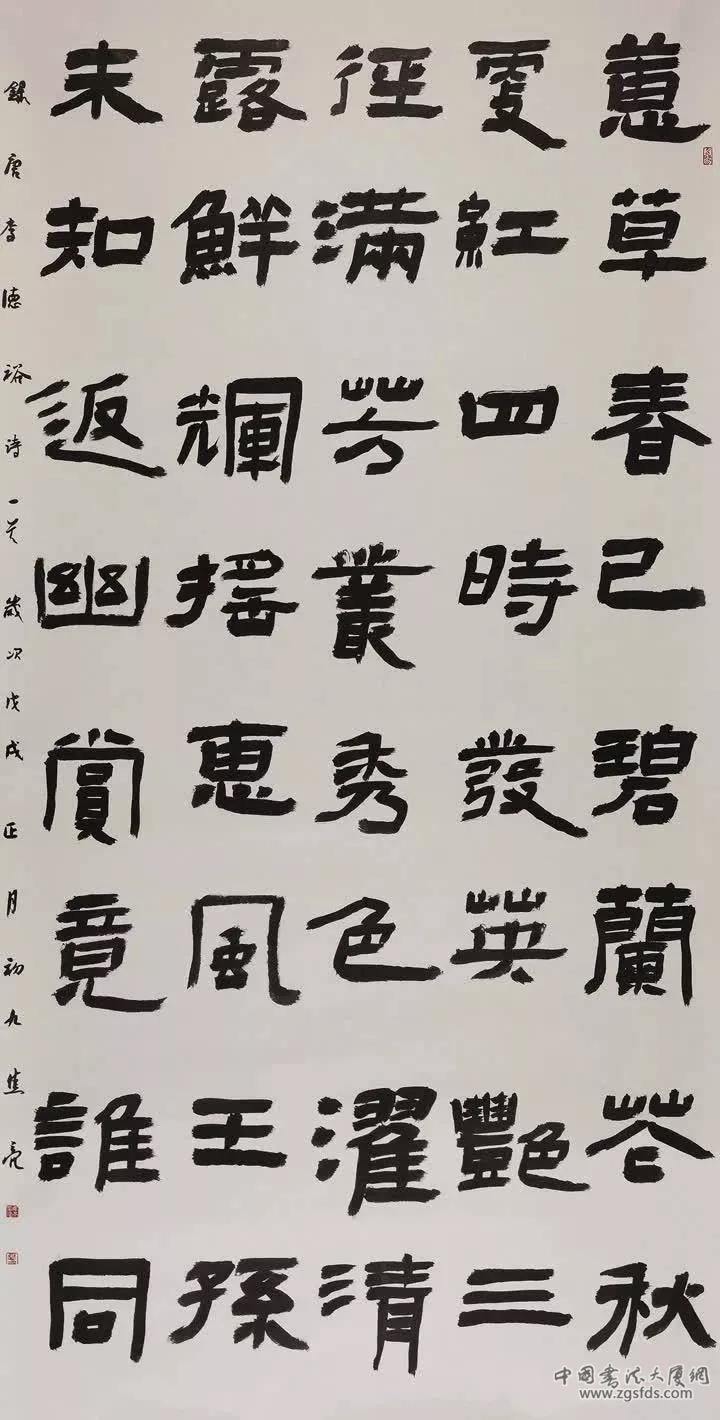 蕙草春已碧蘭花秋
更紅四時發英艷三
徑滿芳叢秀色濯清
露鮮輝搖惠風王孫
未知返幽賞竟誰同
錄唐李德裕詩一首歲次戊戌正月初九焦亮
中國書法大廈網
www.zgsfds.com